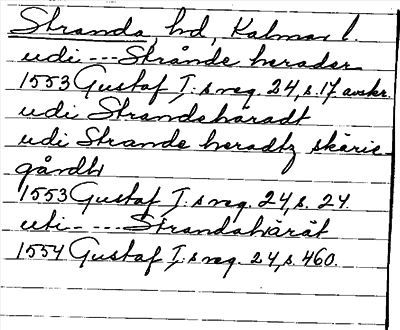 Stranda, hd, Kalmar l.
udi --- Strånde herader
1553 Gustaf I:s reg. 24, s. 17 avskr.
udi Strandeharadt
udi Strande heradtz skärie-
gårdh
1553 Gustaf I:s reg. 24, s. 24.
uti - - - - Strandahärät
1554 Gustaf I:s reg. 24, s. 460.